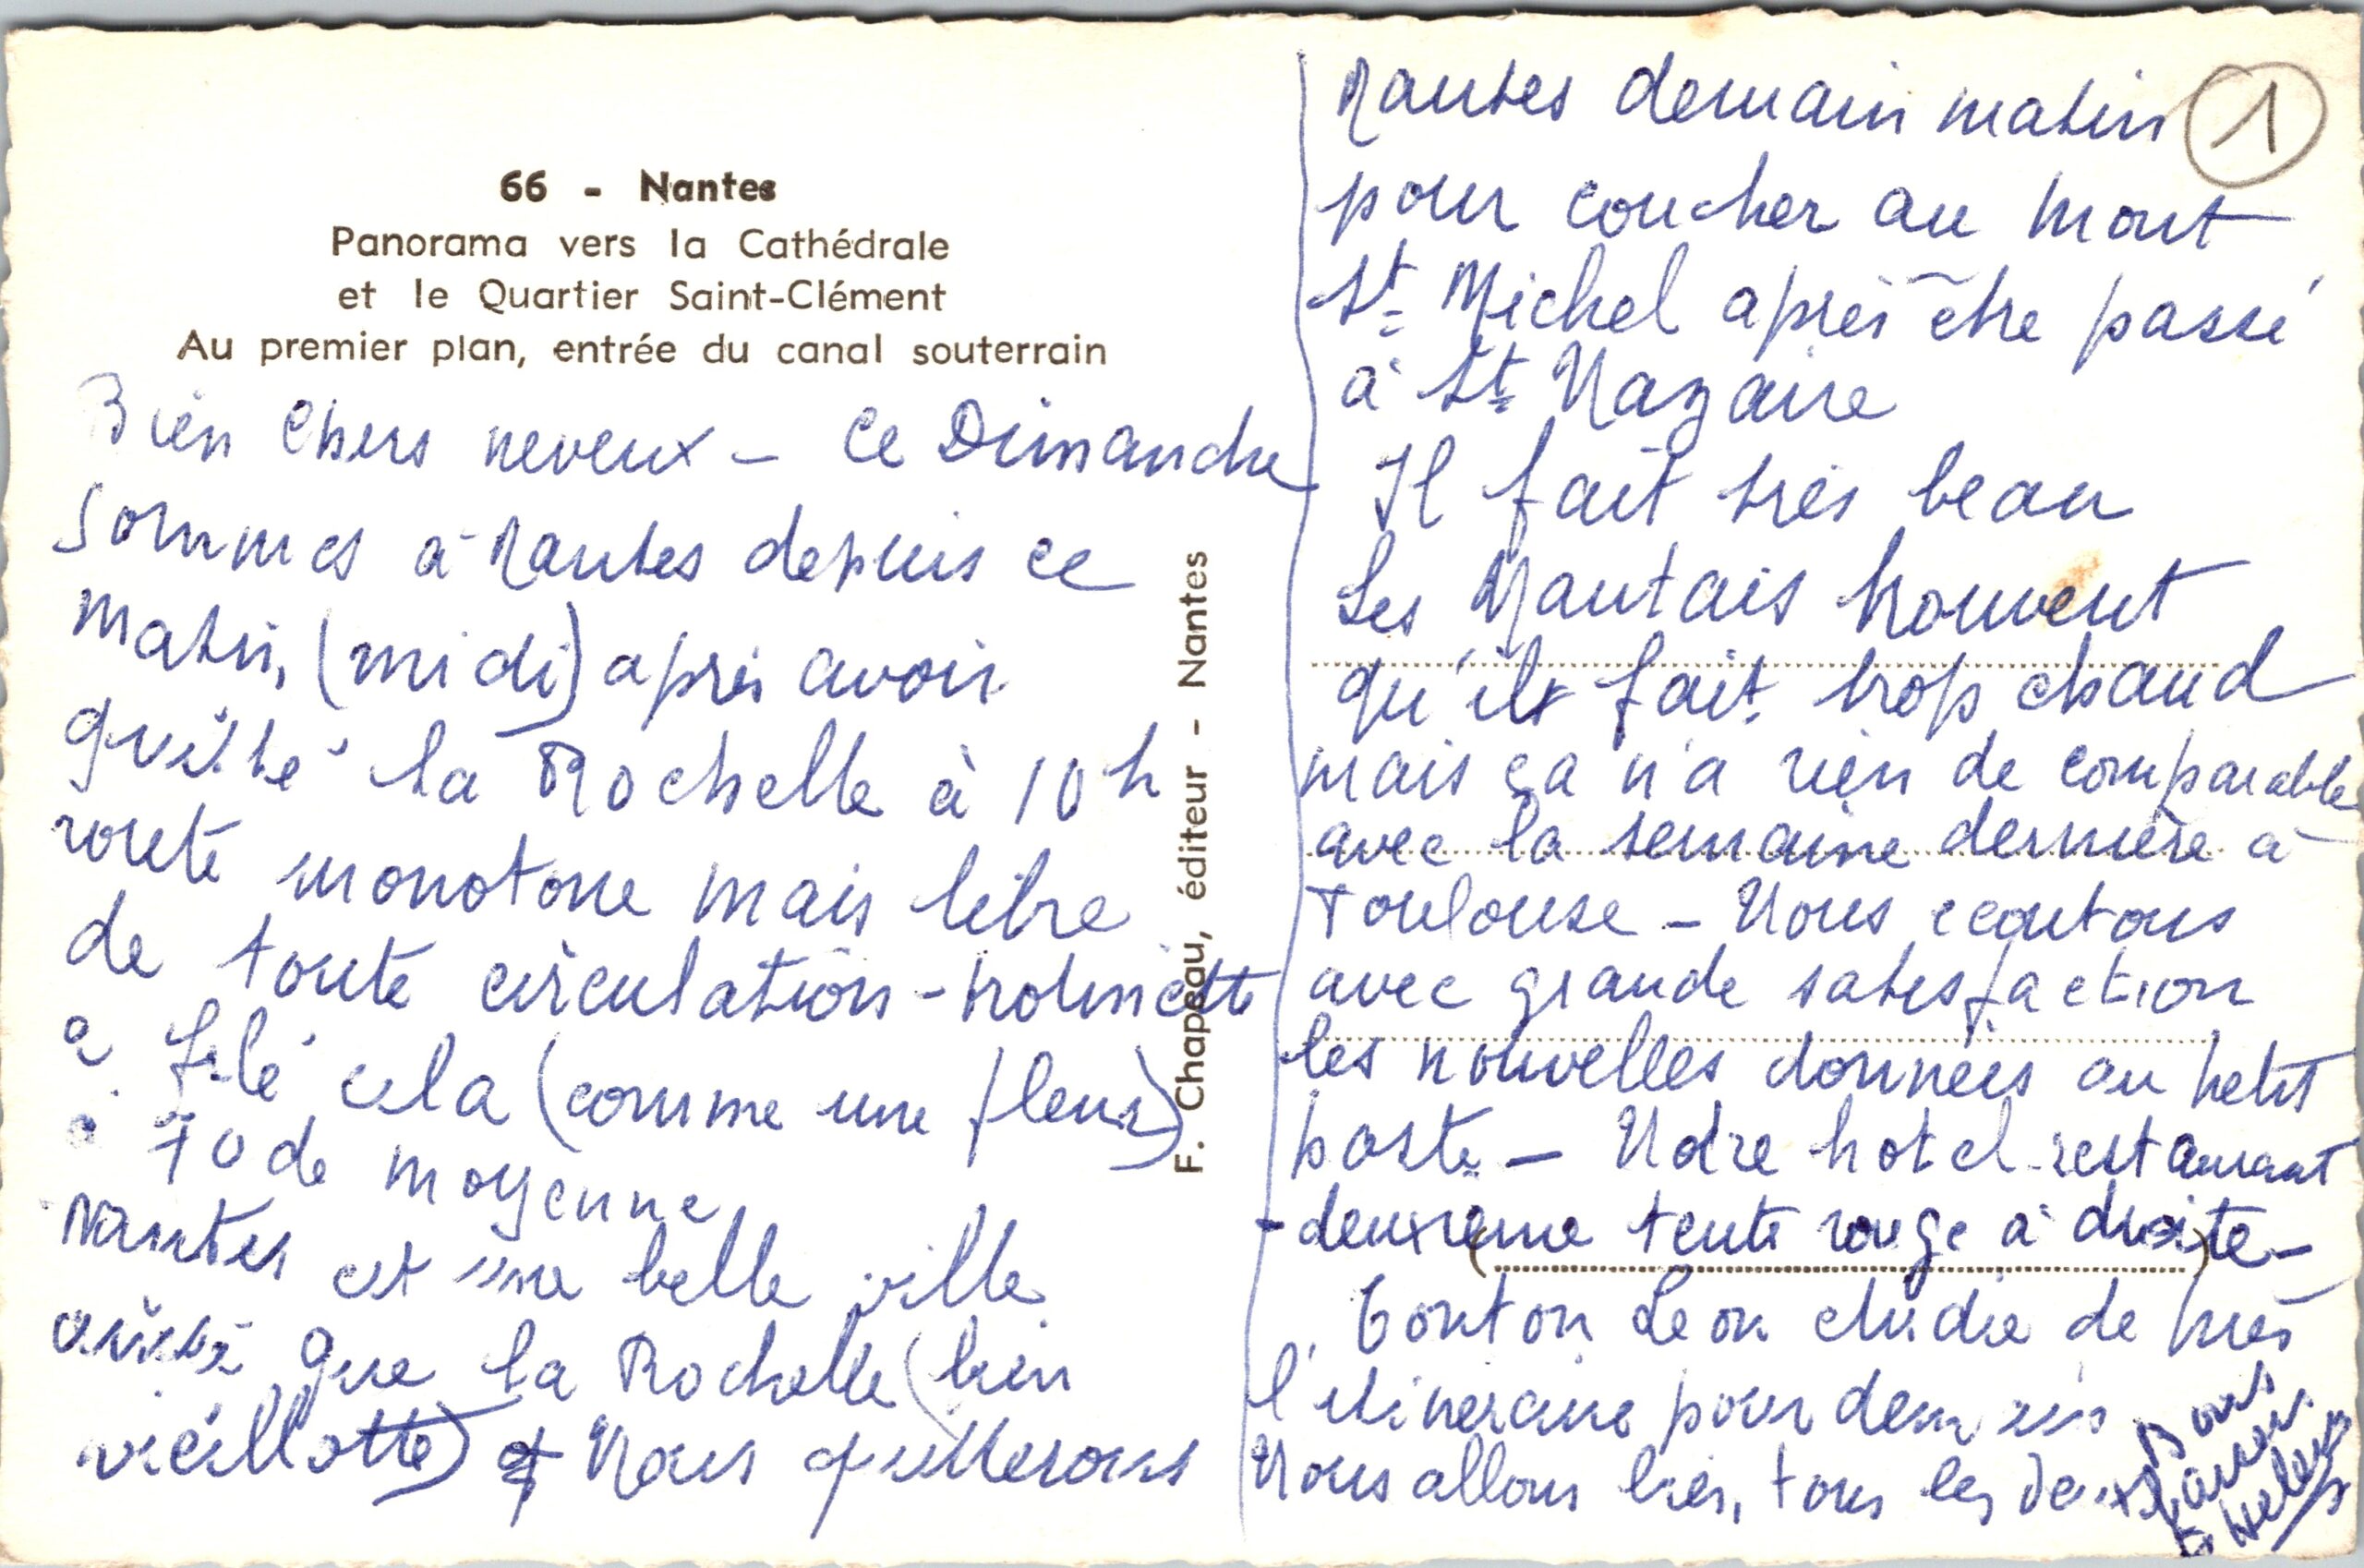 66 - Nantes
Panorama vers la Cathédrale
et le Quartier Saint-Clément
Au premier plan, entrée du canal souterrain
Bien Chers neveux - Ce Dimanche
Sommes a Nantes depuis ce
matin, (midi) après avoir
quitté la Rochelle à 10 h
route monotone mais libre
de toute circulation - trotinette
a filé cela (comme une fleur)
à 70 de moyenne
Nantes est une belle ville
que la Rochelle (bien
vieillotte) Nous quitterons
F. Chapeau, éditeur - Nantes
1
Nantes demain matin
pour coucher au Mont
St Michel après être passé
à St Nazaire
Il fait très beau
Les Nantais trouvent
qu'ils fait trop chaud
mais ça n'a rien de comparable
avec la semaine dernière à
Toulouse - Nous ecoutons
avec grande satisfaction
les nouvelles données au petit
poste - Notre hotel restaurant
- deuxieme tente rouge à droite -
Tonton Leon etudie de près
l'itineraire pour demain
Nous allons bien, tous les deux
Bons